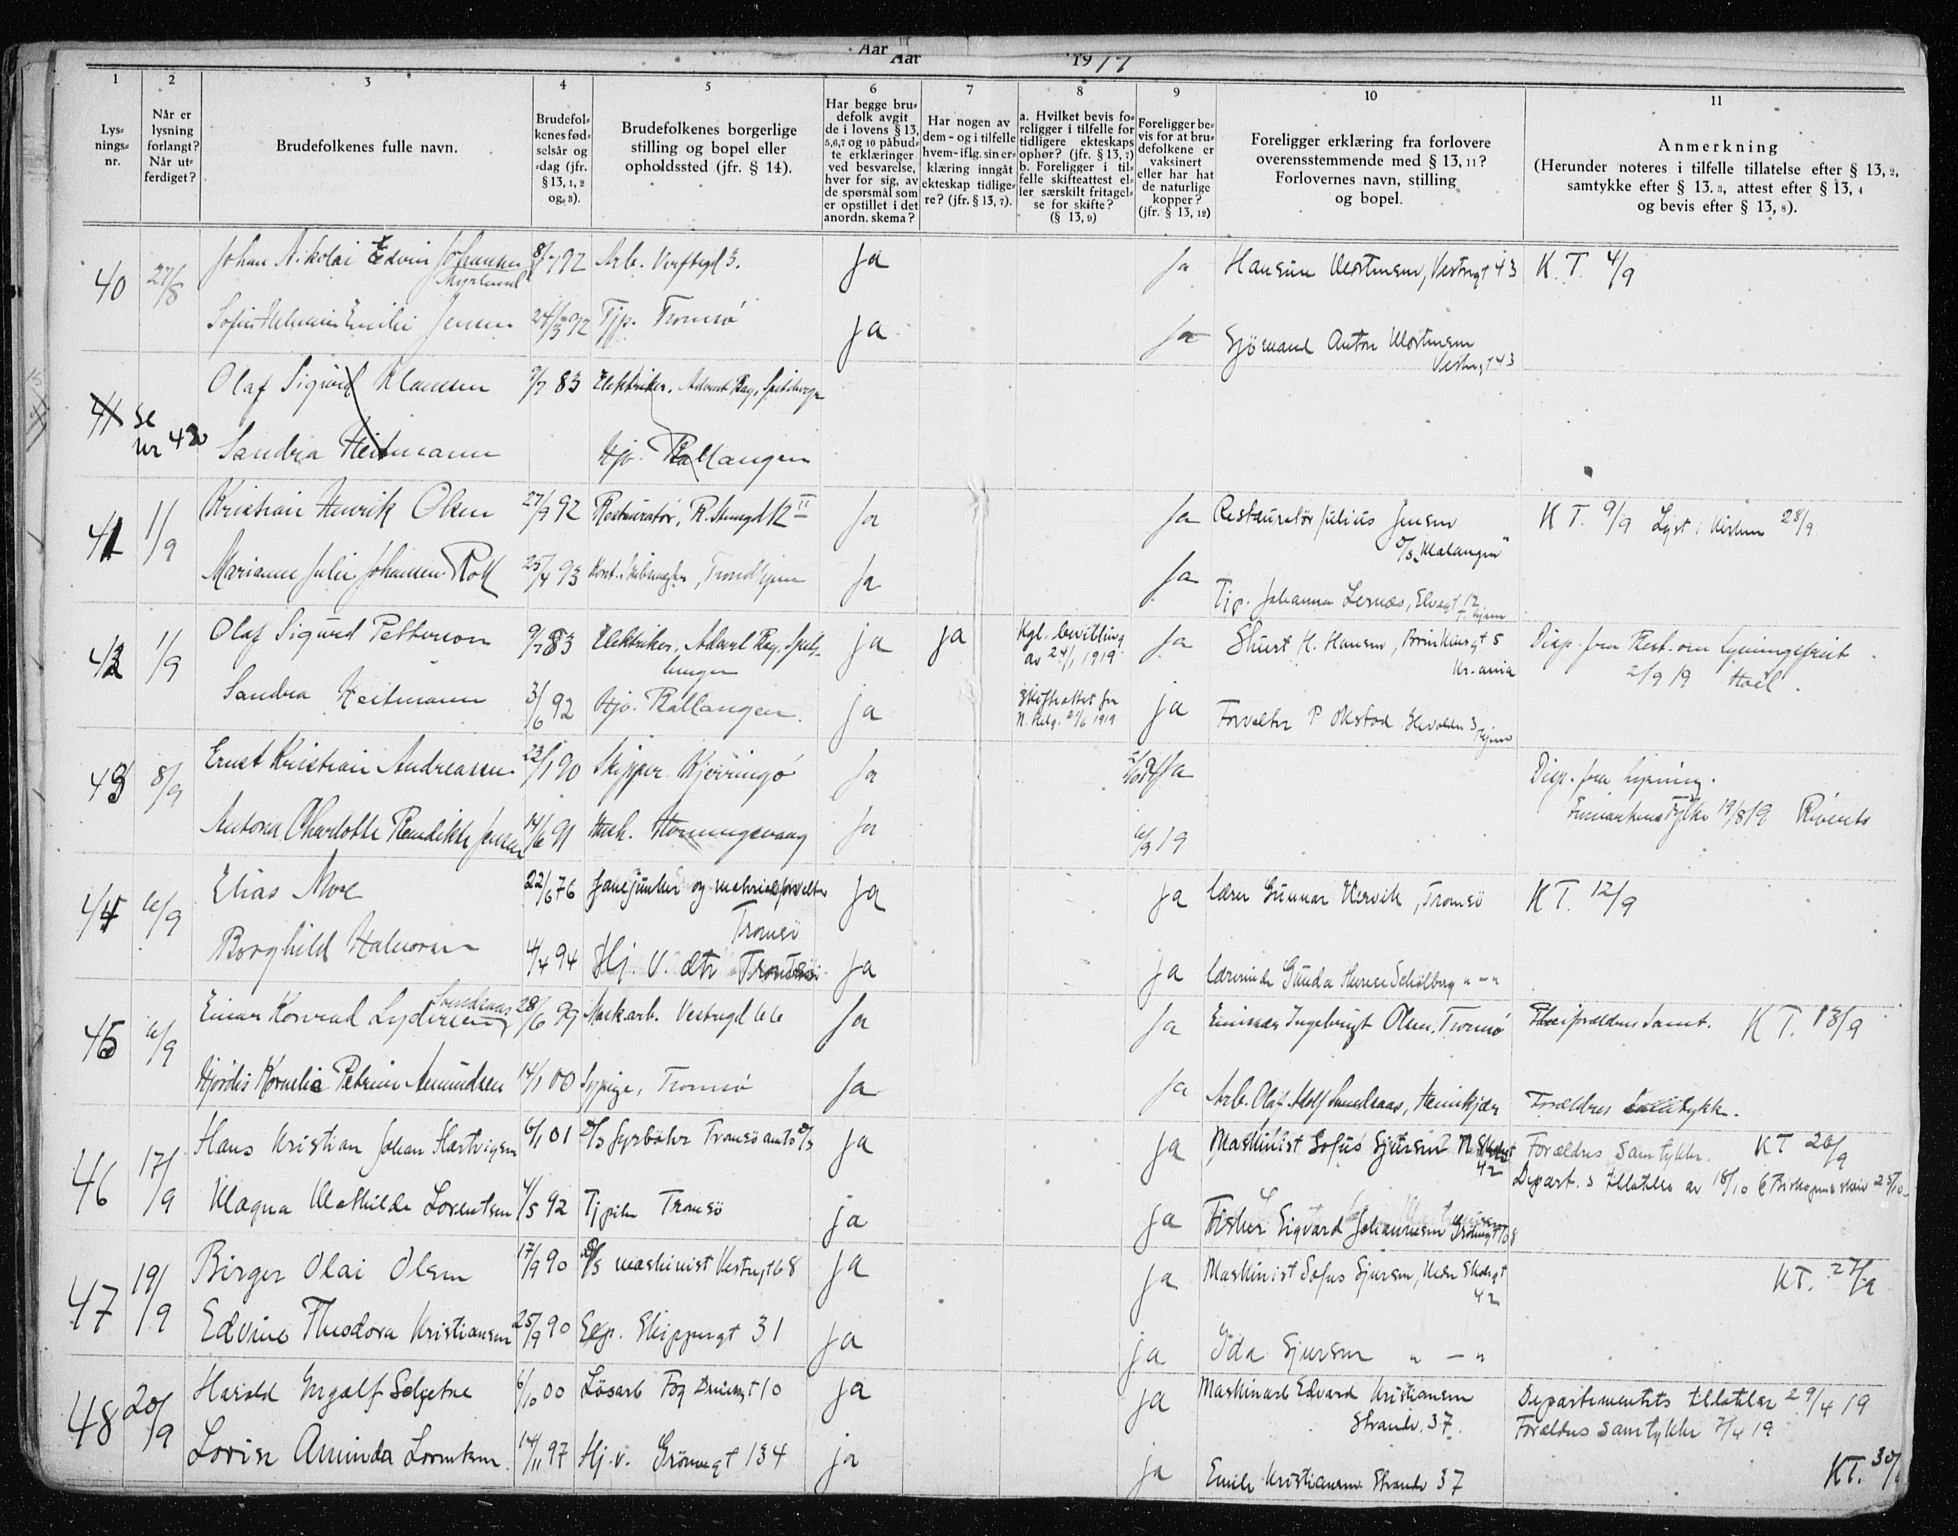 Aar
Aar 1919
1 2 3 4 5 6 7 8 9 10 11
Lys-
nings-
nr.
Når er
lysning
forlangt?
Når ut-
ferdiget?
Brudefolkenes fulle navn.
Brudefol-
kenes fød-
selsår og
-dag (jfr.
§ 13, 1, 2
og 3).
Brudefolkenes borgerlige
stilling og bopel eller
opholdssted (jfr. § 14).
Har begge bru-
defolk avgit
de i lovens § 13,
5,6,7 og 10 påbud-
te erklæringer
ved besvarelse,
hver for sig, av
de spørsmål som
er opstillet i det
anordn. skema?
Har nogen av
dem - og i tilfelle
hvem - iflg. sin er-
klæring inngått
ekteskap tidlige-
re? (jfr. § 13, 7).
a. Hvilket bevis fo-
religger i tilfelle for
tidligere ekteskaps
ophør? (jfr. § 13, 7)
b. Foreligger i til-
felle skifteattest el-
ler særskilt fritagel-
se for skifte?
(§ 13, 9)
Foreligger be-
vis for at bru-
defolkene er
vaksinert
eller har hat
de naturlige
kopper?
(jfr. § 13, 12)
Foreligger erklæring fra forlovere
overensstemmende med § 13, 11?
Forlovernes navn, stilling
og bopel.
Anmerkning
(Herunder noteres i tilfelle tillatelse efter § 13, 2,
samtykke efter § 13. 3, attest efter § 13, 4
og bevis efter § 13, 8).
40 27/8 Johan Nikolai Edvin Johansen 8/ 92 Arb. Verftsgt 3. Ja Ja Hansine Mortensen, Vestregt 43 K. T. 4/9
Myrlund
Sofie Emilie Jensen 24/3 92 Tjp. Tromsö Ja Ja Sjömand Anton Mortensen
Vestregt 43
41 se nr 42 Olaf Sigurd Klausen 9/7 83 Elektriker, Advent Bay, Spitsbergen
Sandra Heitmann Hjv. Ballangen
41 1/9 Kristian Henrik Olsen 27/9 92 Restauratör, R. 12 II Ja Ja Restauratör Julius Jensen K T. 9/9 Lyst i Kirken 28/9
D/S "Malangen"
Marianne Julie Johansen Roll 25/4 93 Trondhjem Ja Ja Tjp. Johanna Lernæs, Elvegt 12
T.hjem
42 1/9 Olaf Sigurd Pettersen 9/7 83 Elektriker, Advent Bay, Spits- ja ja Kgl. bevilling Ja H. Hansen, 5 Disp. fra lysningsfrist
bergen av 24/1 1919 Kr.ania 2/9 19 Hoel.
Sandra Heitmann 3/6 92 Hjv. Ballangen. ja Skifteattest fra ja Forvalter P Okstad 3 Thjem
N. Helg. 21/6 1919
43 8/9 Ernst Kristian Andreassen 22/1 90 Skipper Kjerringö Ja Ja Disp. fra lysning.
Finmarkens Fylke 19/8 19
Antora Charlotte Bendikte Jensen 14/6 91 Hush. Honningsvaag Ja 6/9 19
44 6/9 Elias Moe 22/6 76 og materialforvalter Ja ja Lærer Gunnar Kervik, Tromsö KT. 12/9
Tromsö
Borghild Halvorsen 4/4 94 Hj. v. dtr Tromsö. Ja ja Lærerinde Gunda Therese Schölberg " - "
45 6/9 Einar Konrad Lydersen 28/6 99 Maskarb. Vestregt 66 Ja Ja Ingebrigt Olsen, Tromsö KT. 13/9
Svendsaas
Hjördis Kornelie Petrine Amundsen 14/1 00 Sypige, Tromsö Ja Ja Arb. Olaf Adolf Svendsaas, Forældres samtykke.
46 17/9 Hans Kristian Johan Hartvigsen 6/1 01 Fyrböter Tromsö amts D/S ja ja Maskinist Sofus Sjursen N Skolegt Forældres samtykke. KT 26/9
42 Depart. s tillatelse av 18/10
Magna Mathilde Lorentsen 4/5 92 Tjpike Tromsö ja ja Fisker Sigvard Johannesen Grönnegt 108
47 19/9 Birger Olai Olsen 17/9 90 D/S maskinist Vestregt 68 ja ja Maskinist Sofus Sjursen, Nedr Skolegt KT. 27/9
42
Edvine Theodora Kristiansen 25/9 90 Exp. Skippergt 31 ja ja Ida Sjursen " - "
48 20/9 Harald Ingolf Seljetne 6/10 00 Lösarb Fog Dreiersgt 10 ja ja Maskinarb Edvard Kristiansen Departementets tillatelse 29/4 19
Strandv. 37. Forældres samtykke 7/4 19
Lovise Aminda Lorentsen 14/11 97 Hj. v. Grönnegt 134 ja ja Emilie Kristiansen Strandv 37 KT. 30/